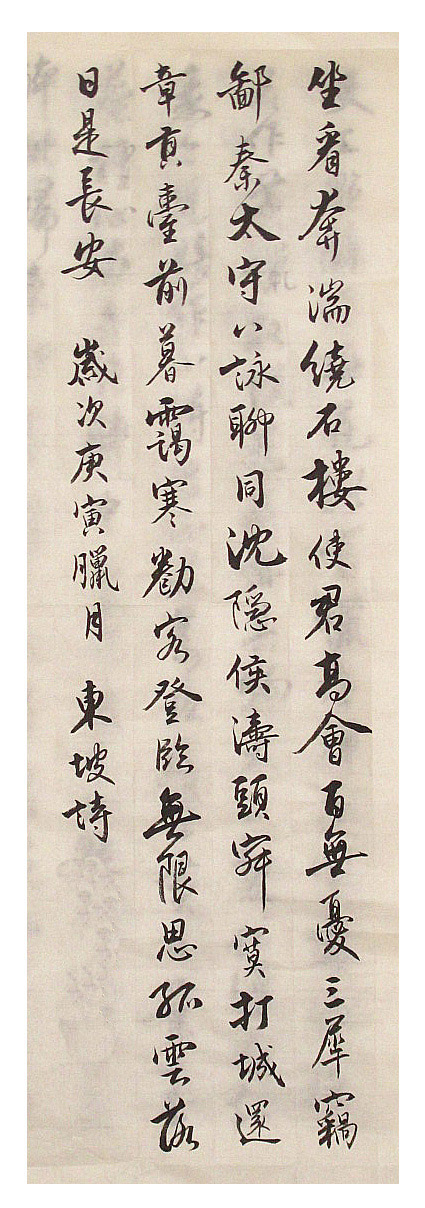 坐看奔湍繞石樓使君高會百無憂三犀竊
鄙秦太守八詠聊同沈隱侯濤頭寂寞打城還
章貢臺前暮靄寒勌客登臨無限思孤雲落
日是長安 歲次庚寅臘月 東坡詩